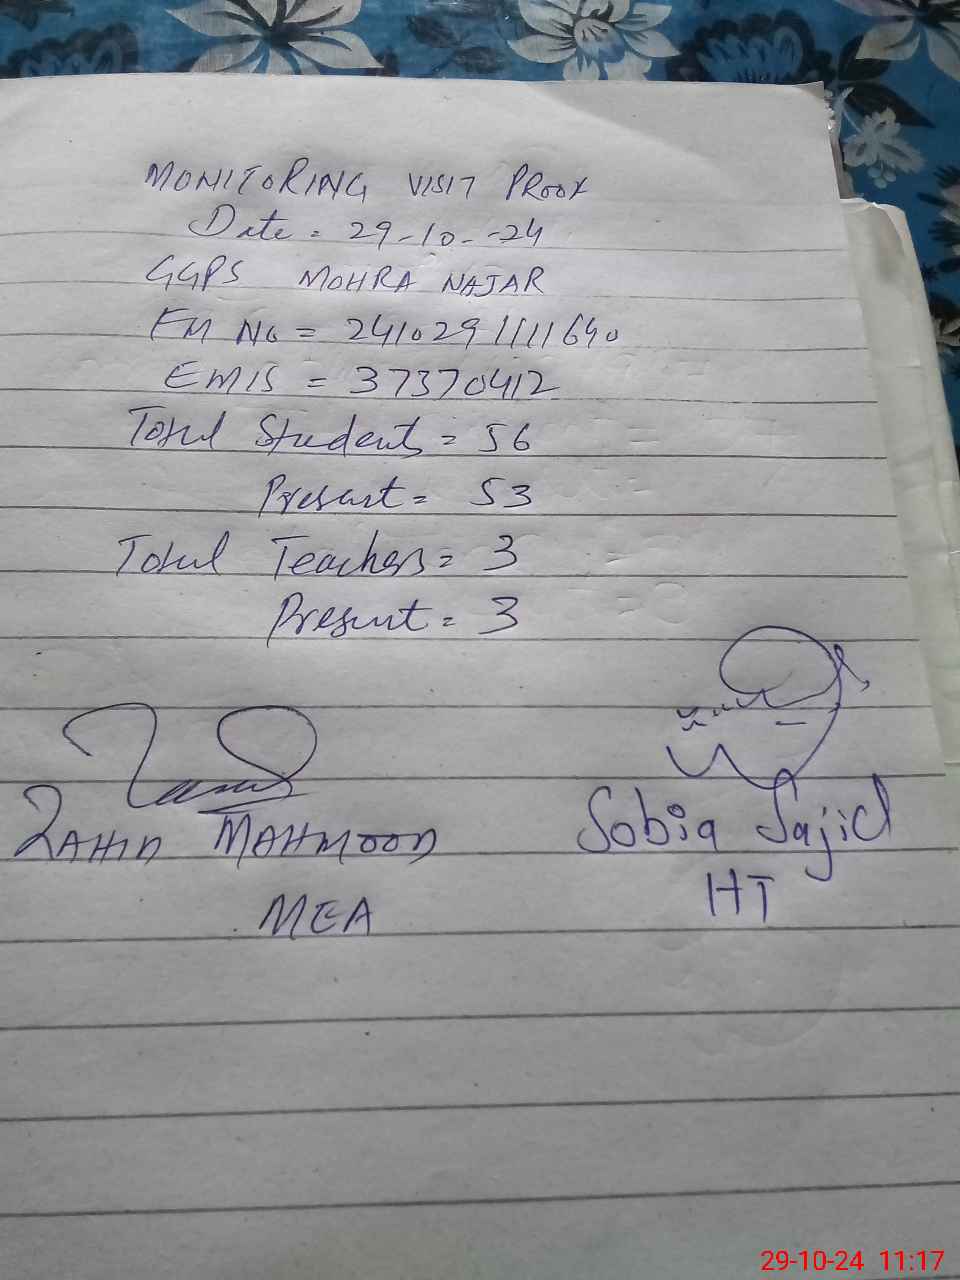 MONITORING VISIT PROOF
Date = 29-10-24
GGPS MOHRA NAJAR
EM No = 2410291111640
EMIS = 37370412
Total Students = 56
Present = 53
Total Teachers = 3
Present = 3
ZAHID MAHMOOD
Sobia Sajid
MEA
HT
29-10-24 11:17